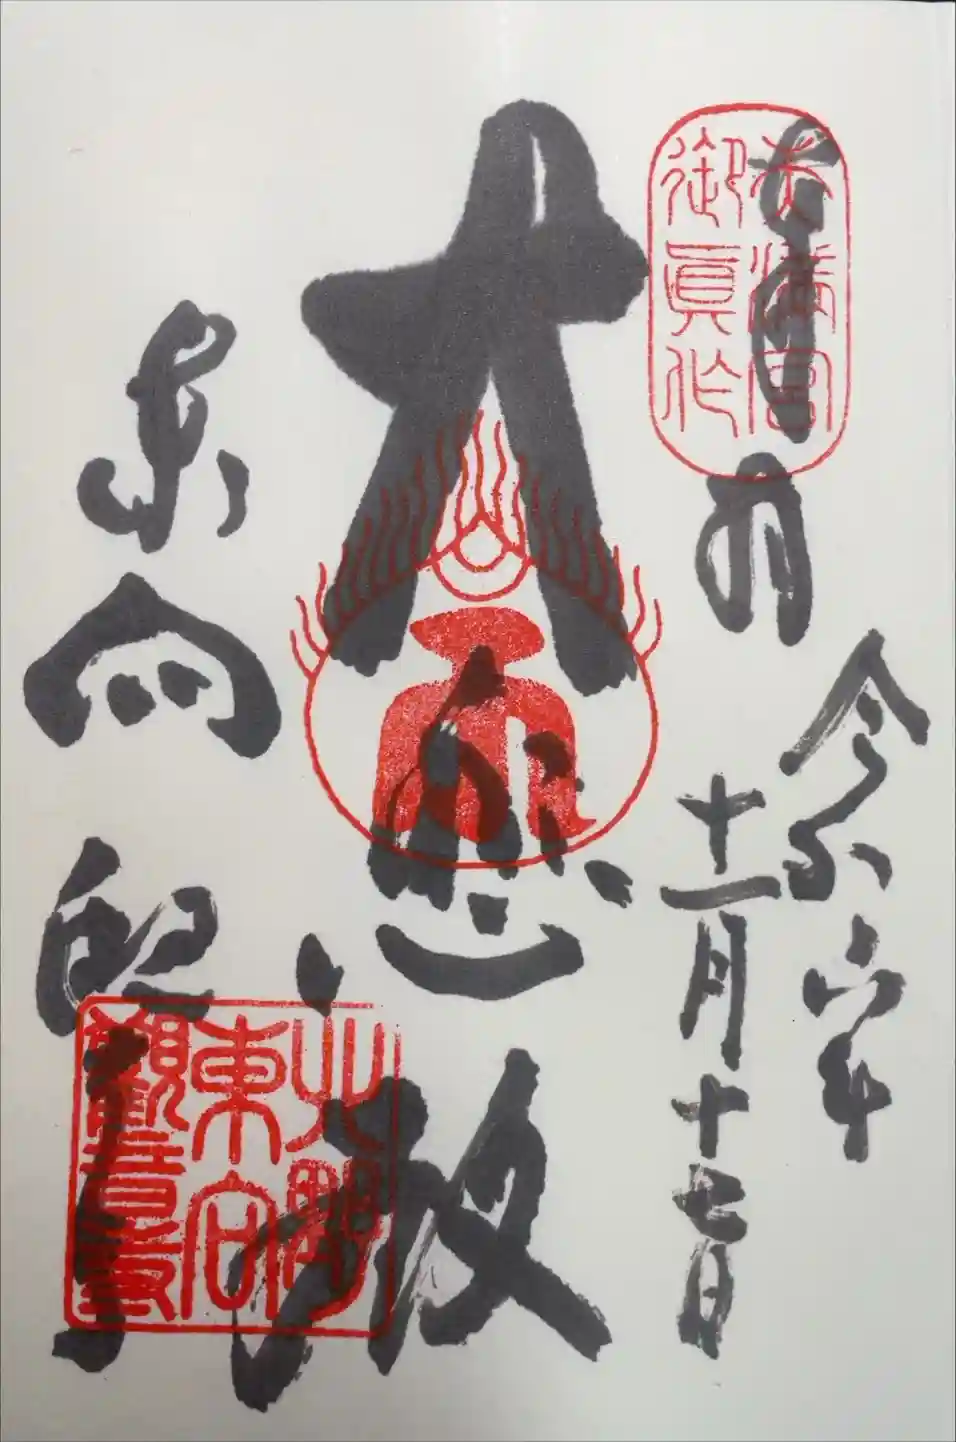 奉拝
令和六年
十一月十七日
天満宮
御眞作
大悲殿
東向観音
北野
東向
観音寺